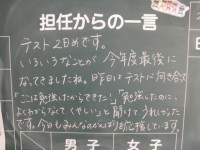 担任からの一言
テスト2日めです。
いろいろなことが今年度最後に
なってきましたね。昨日はテストに向き合って
「ここは勉強したからできた！」「勉強したのに、
よくわからなくてくやしい」と聞けてうれしかった
です。今日もみんなのがんばり応援しています。
男子 女子